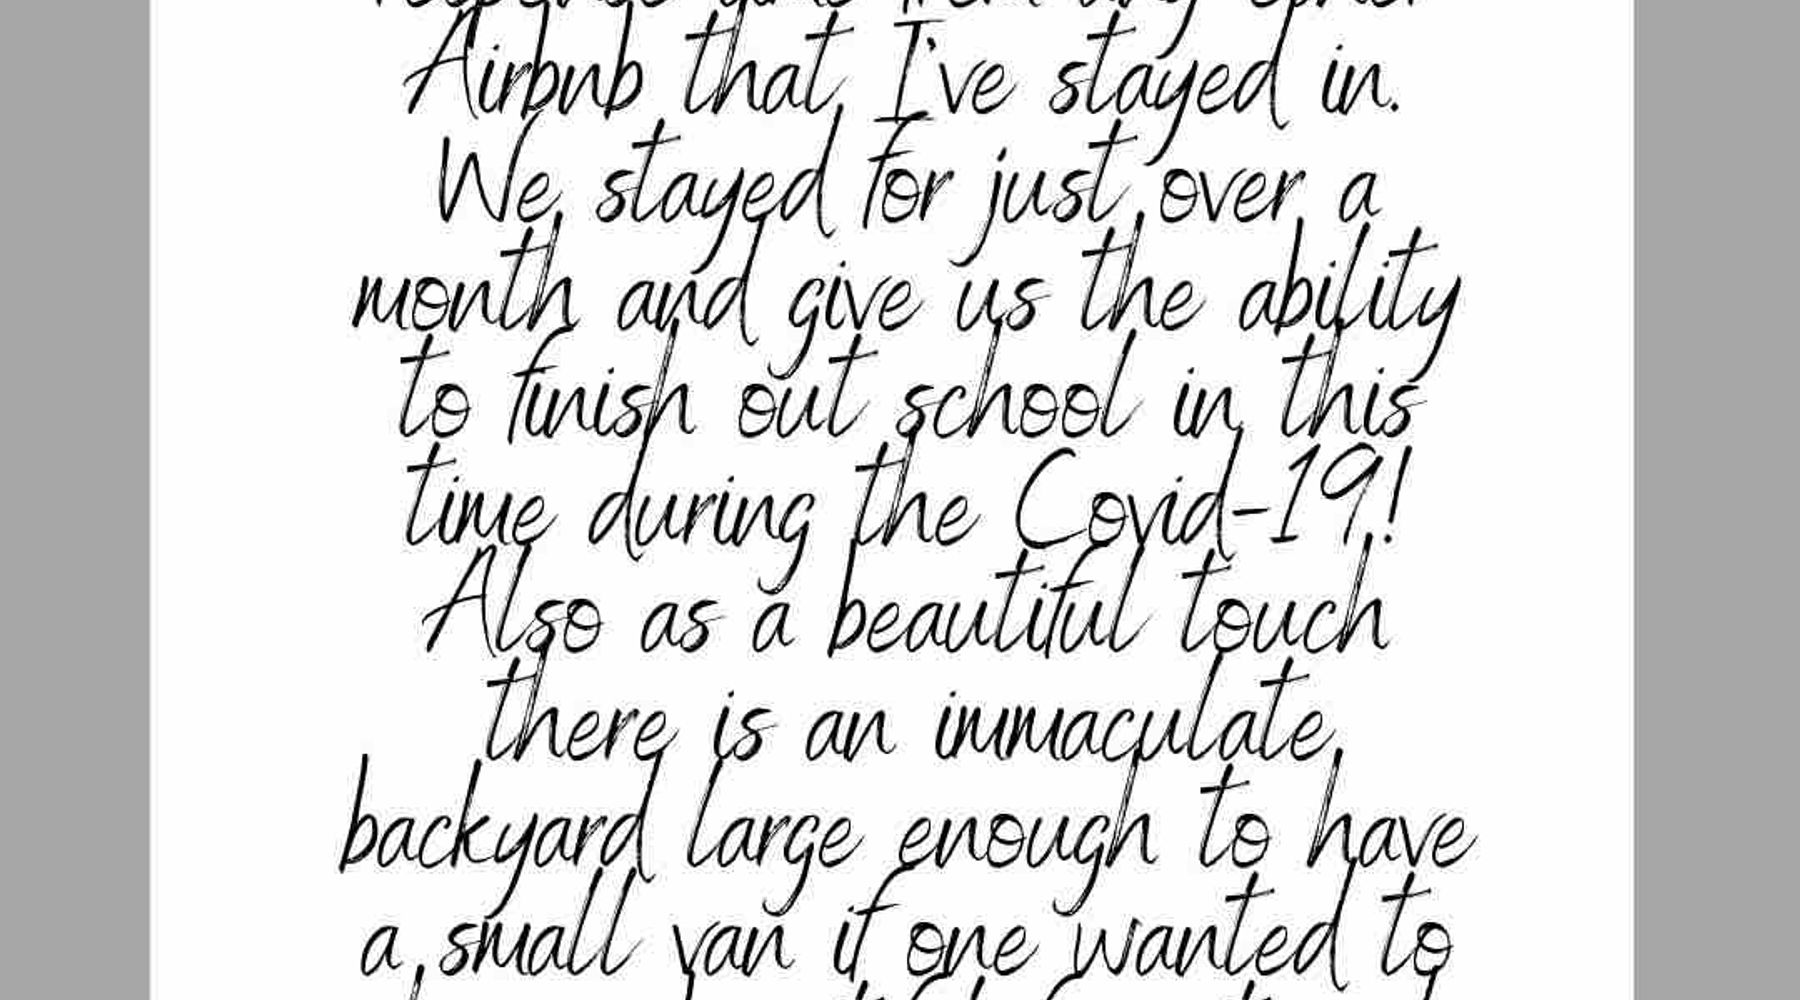 response time from any other
Airbnb that I've stayed in.
We stayed for just over a
month and give us the ability
to finish out school in this
time during the Covid-19!
Also as a beautiful touch
there is an immaculate
backyard large enough to have
a small van if one wanted to